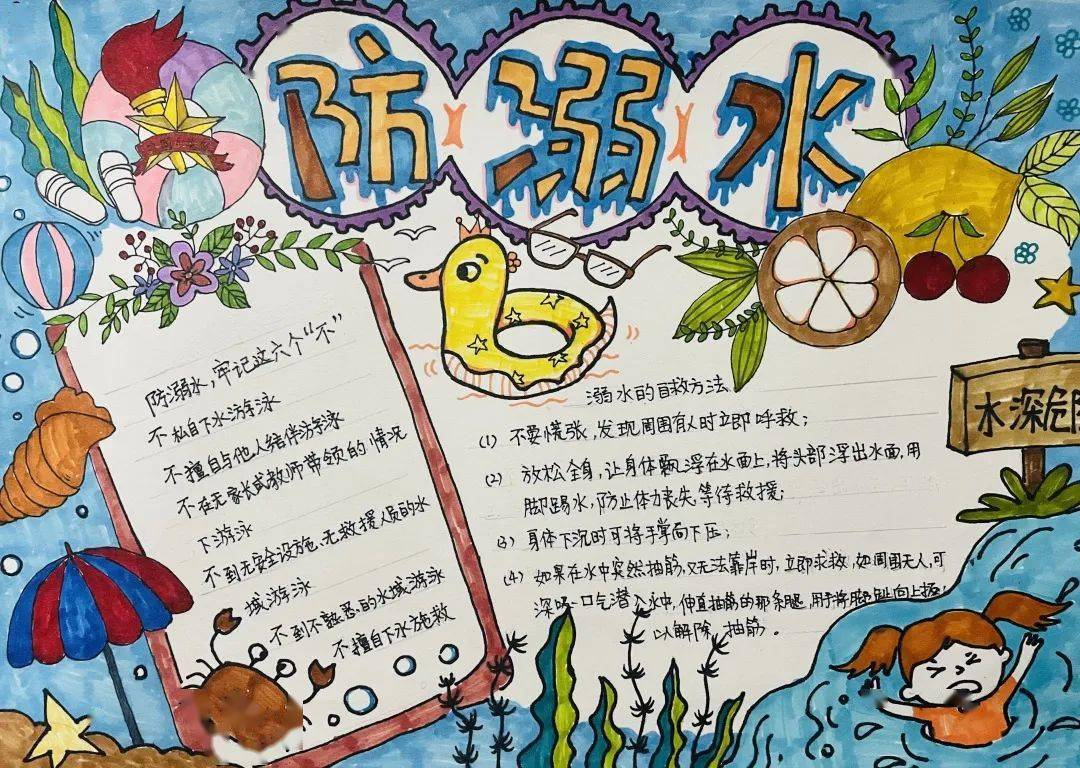 防溺水
防溺水，牢记这六个“不”
不私自下水游泳
不擅自与他人结伴游泳
不在无家长或教师带领的情况
下游泳
不到无安全设施、无救援人员的水
域游泳
不到不熟悉的水域游泳
不擅自下水施救
溺水的自救方法
(1) 不要慌张，发现周围有人时立即呼救；
(2) 放松全身，让身体飘浮在水面上，将头部浮出水面，用
脚踢水，防止体力丧失，等待救援；
(3) 身体下沉时可将手掌向下压；
(4) 如果在水中突然抽筋，又无法靠岸时，立即求救，如周围无人，可
深吸一口气潜入水中，伸直抽筋的那条腿，用手将脚趾向上扳，
以解除 抽筋。
水深危险